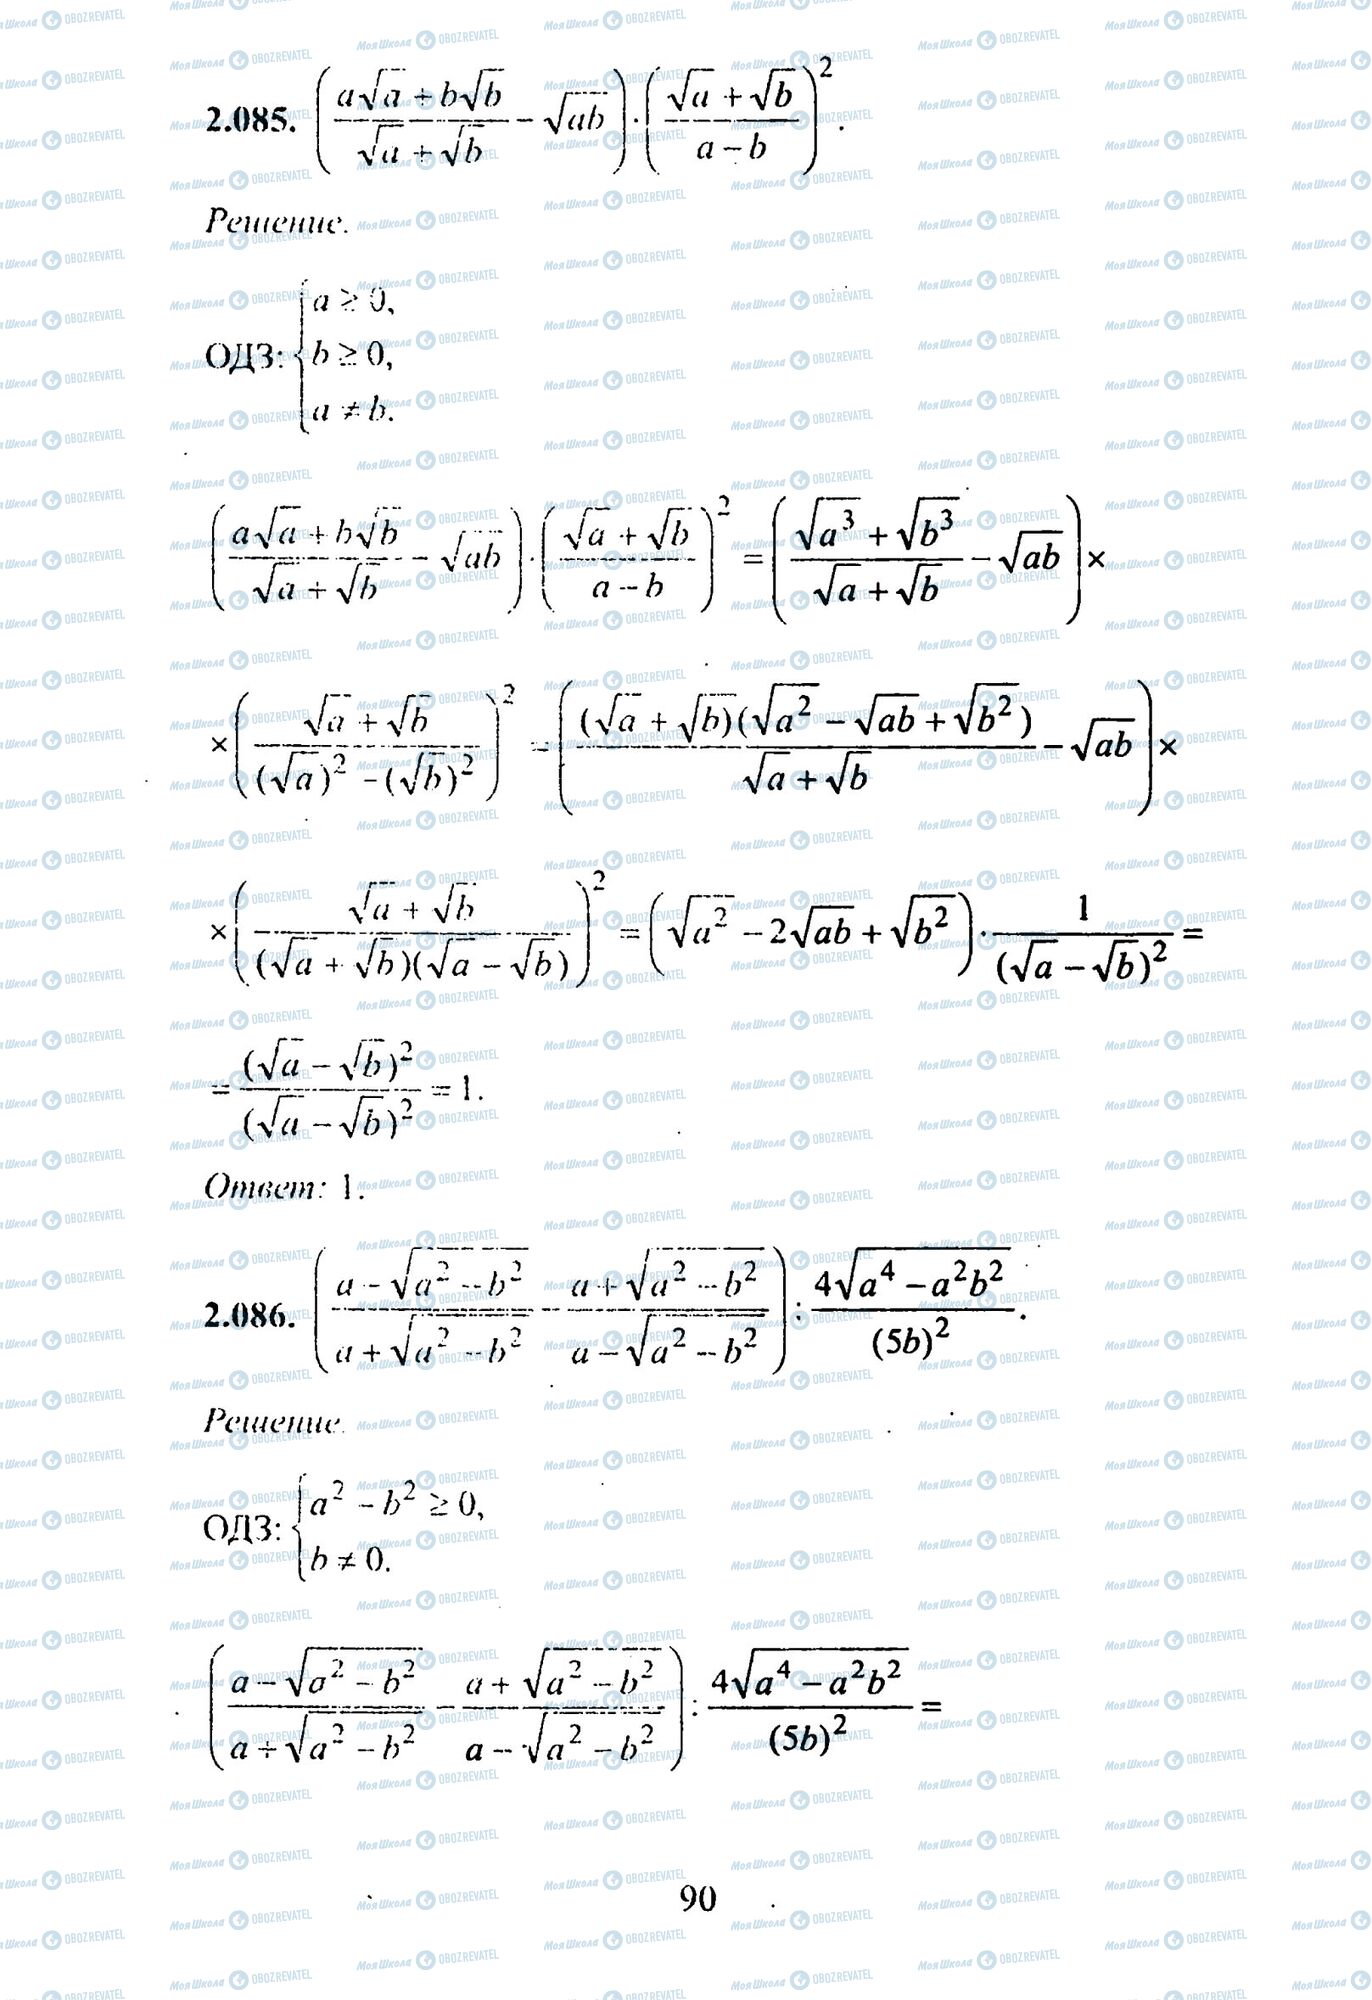 2.085. \left( \frac{a\sqrt{a} + b\sqrt{b}}{\sqrt{a} + \sqrt{b}} - \sqrt{ab} \right) \cdot \left( \frac{\sqrt{a} + \sqrt{b}}{a - b} \right)^2.
Решение.
ОДЗ: \begin{cases} a ≥ 0, \\ b ≥ 0, \\ a ≠ b. \end{cases}
\left( \frac{a\sqrt{a} + b\sqrt{b}}{\sqrt{a} + \sqrt{b}} - \sqrt{ab} \right) \cdot \left( \frac{\sqrt{a} + \sqrt{b}}{a - b} \right)^2 = \left( \frac{\sqrt{a^3} + \sqrt{b^3}}{\sqrt{a} + \sqrt{b}} - \sqrt{ab} \right) ×
× \left( \frac{\sqrt{a} + \sqrt{b}}{(\sqrt{a})^2 - (\sqrt{b})^2} \right)^2 = \left( \frac{(\sqrt{a} + \sqrt{b})(\sqrt{a^2} - \sqrt{ab} + \sqrt{b^2})}{\sqrt{a} + \sqrt{b}} - \sqrt{ab} \right) ×
× \left( \frac{\sqrt{a} + \sqrt{b}}{(\sqrt{a} + \sqrt{b})(\sqrt{a} - \sqrt{b})} \right)^2 = \left( \sqrt{a^2} - 2\sqrt{ab} + \sqrt{b^2} \right) \cdot \frac{1}{(\sqrt{a} - \sqrt{b})^2} =
= \frac{(\sqrt{a} - \sqrt{b})^2}{(\sqrt{a} - \sqrt{b})^2} = 1.
Ответ: 1.
2.086. \left( \frac{a - \sqrt{a^2 - b^2}}{a + \sqrt{a^2 - b^2}} - \frac{a + \sqrt{a^2 - b^2}}{a - \sqrt{a^2 - b^2}} \right) : \frac{4\sqrt{a^4 - a^2b^2}}{(5b)^2}.
Решение.
ОДЗ: \begin{cases} a^2 - b^2 ≥ 0, \\ b ≠ 0. \end{cases}
\left( \frac{a - \sqrt{a^2 - b^2}}{a + \sqrt{a^2 - b^2}} - \frac{a + \sqrt{a^2 - b^2}}{a - \sqrt{a^2 - b^2}} \right) : \frac{4\sqrt{a^4 - a^2b^2}}{(5b)^2} =
90
МояШкола OBOZREVATEL